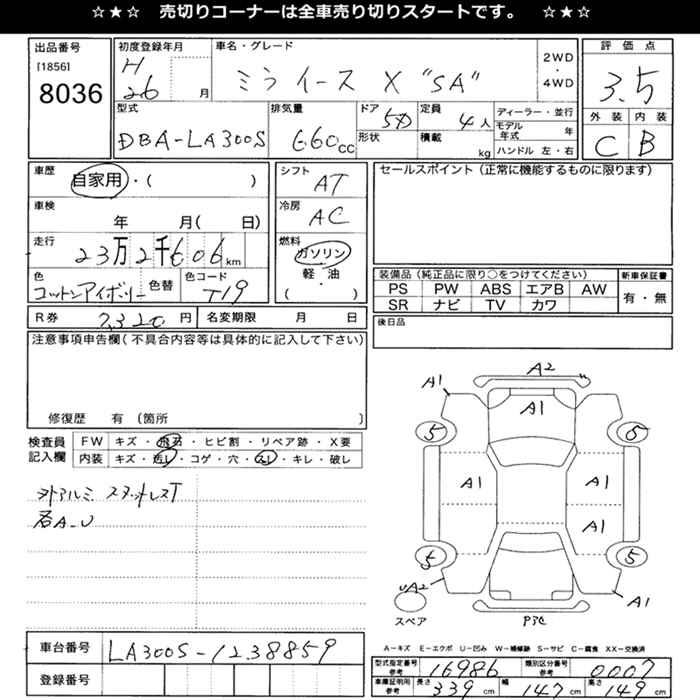 ☆★☆ 売切りコーナーは全車売り切りスタートです。 ☆★☆
出品番号
[1856]
8036
初度登録年月
H
26 月
車名・グレード
ミライース X "SA"
2WD
・
4WD
評価点
3.5
外装 内装
C B
型式
DBA-LA300S
排気量
660 CC
ドア
5D
形状
定員
4人
積載
kg
ディーラー・並行
モデル年式 年
ハンドル 左・右
車歴
自家用・( )
車検
年 月( 日)
走行
23万2千606 km
色
コットンアイボリー
色替
色コード
T19
シフト
AT
冷房
AC
燃料
ガソリン
軽・油
( )
セールスポイント (正常に機能するものに限ります)
装備品 (純正品に限り○をつけてください)
PS PW ABS エアB AW
SR ナビ TV カワ
新車保証書
有・無
R券 7,320 円
名変期限 月 日
後日品
注意事項申告欄(不具合内容等は具体的に記入して下さい)
修復歴 有 (箇所 )
検査員
記入欄
FW キズ・飛石・ヒビ割・リペア跡・X要
内装 キズ・・コゲ・穴・・キレ・破レ
スタットレスT
各A-U
A1 A2
A1
5 5
A1 A1
A1
5 5
UA2 A1
スペア
P3C
A-キズ E-エクボ U-凹み W-補修跡 S-サビ C-腐食 XX-交換済
車台番号 LA300S-1238859
登録番号
型式指定番号
参考
16986
類別区分番号
参考
0007
車庫証明用
参考
長さ 339 cm 幅 147 cm 高さ 149 cm